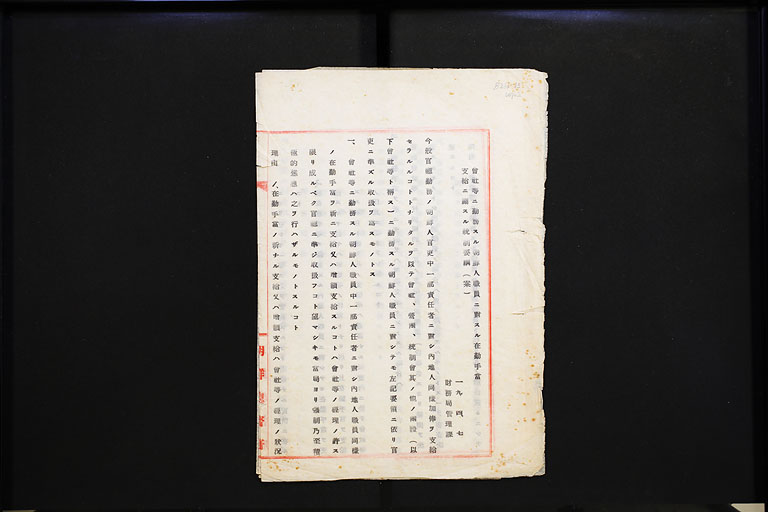 會社等ニ勤務スル朝鮮人職員ニ對スル在勤手當
支給ニ關スル統制要綱(案)
一九、四、七
財務局管理課
今般官廳勤務ノ朝鮮人官吏中一部責任者ニ對シ內地人同樣加俸ヲ支給
セラルルコトトナリタルヲ以テ會社、營團、統制會其ノ他ノ團體(以
下會社等ト稱ス)ニ勤務スル朝鮮人職員ニ對シテモ左記要領ニ依リ官
吏ニ準ズル取扱ヲ爲スモノトス
一、會社等ニ勤務スル朝鮮人職員中一部責任者ニ對シ內地人職員同樣
ノ在勤手當ヲ新ニ支給又ハ增額支給スルコトハ會社等ノ經理ノ許ス
限リ成ルベク官廳ニ準ジ取扱フコト望マシキモ當局ヨリ强制乃至積
極的慫慂ハ之ヲ行ハザルモノトスルコト
理由 ノ在勤手當ノ新ナル支給又ハ增額支給ハ會社等ノ經理ノ狀況
朝鮮總督府